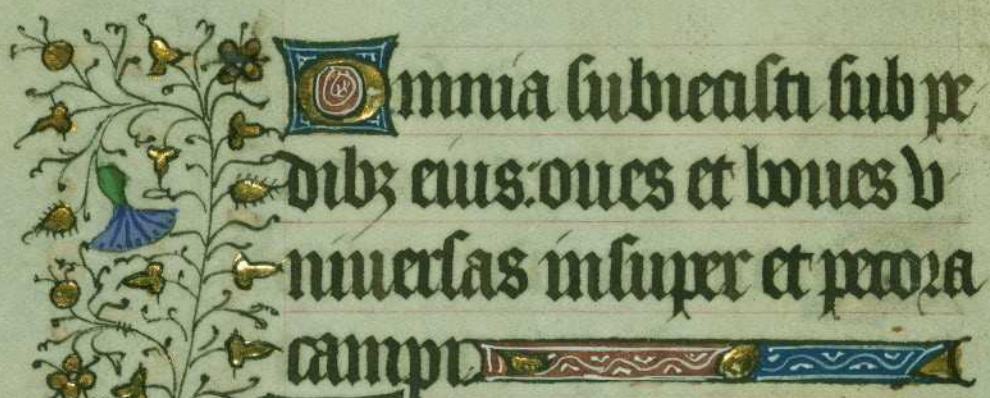 Omnia subiecisti sub pe
dibꝫ eius: oues et boues v
niuersas insuper et pecora
campi